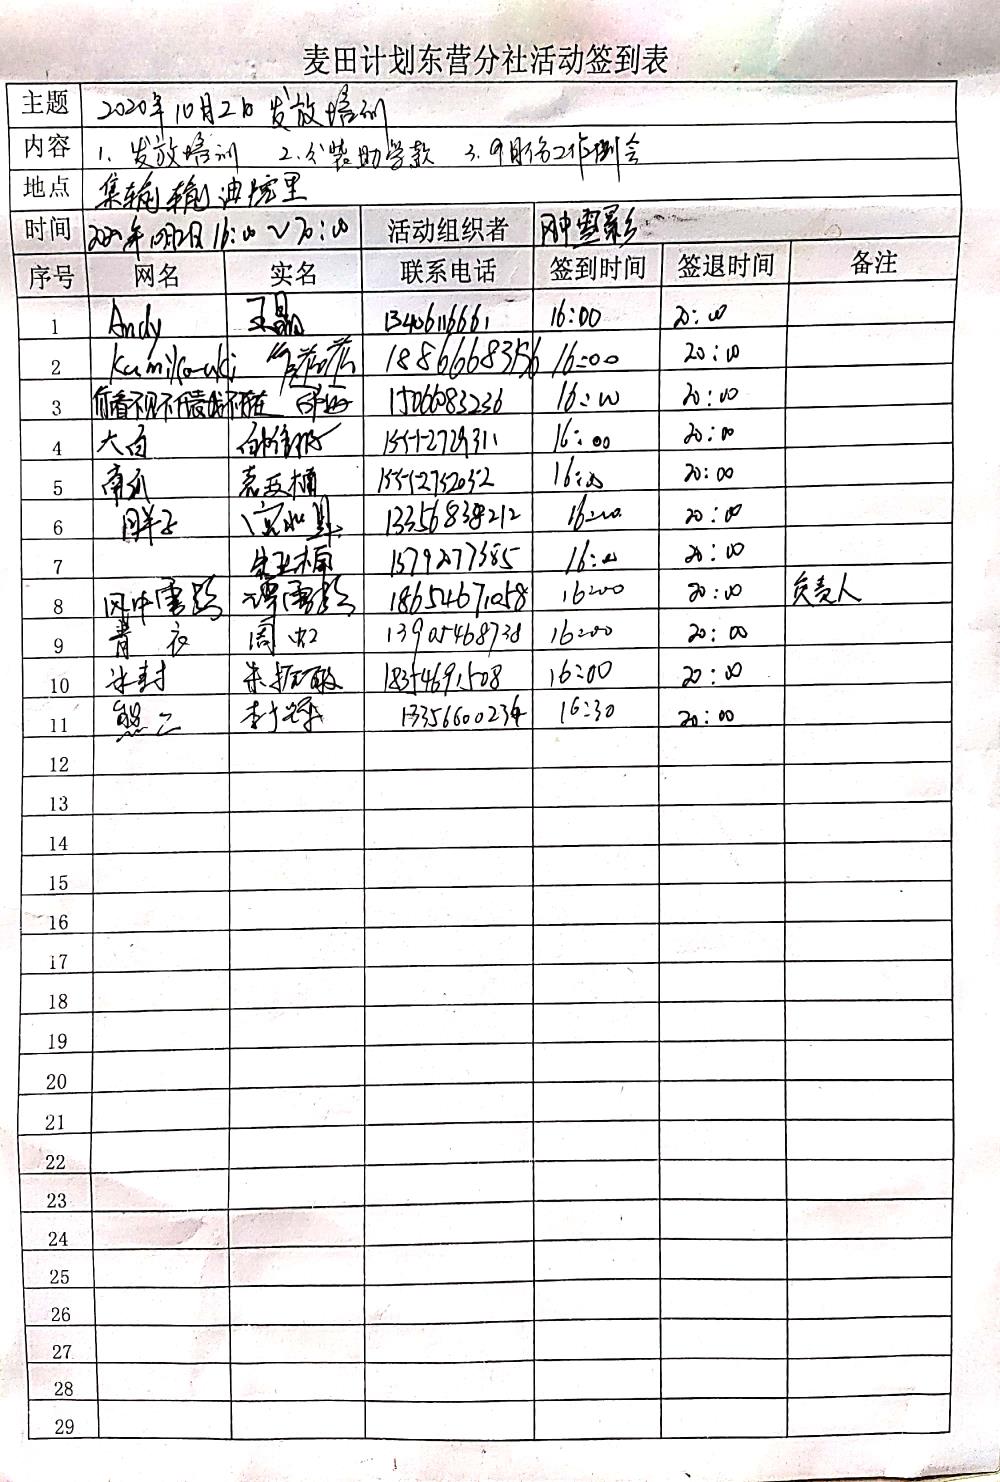 麦田计划东营分社活动签到表
主题 2020年10月2日 发放培训
内容 1、发放培训 2、分装助学款 3、9月份工作例会
地点 集输 输油院里
时间 2020年10月2日 16:00～20:00 活动组织者 风中雪影
序号 网名 实名 联系电话 签到时间 签退时间 备注
1 Andy 王晶 13406116661 16:00 20:00
2 18866668356 16:00 20:00
3 你看不见不代表我不存在 15066083236 16:00 20:00
4 大白 15512729311 16:00 20:00
5 南瓜 袁亚楠 15512752052 16:00 20:00
6 胖子 13356838212 16:00 20:00
7 宋亚楠 1579277385 16:00 20:00
8 风中雪影 谭雪影 18654671058 16:00 20:00 负责人
9 青衣 周虹 13905468738 16:00 20:00
10 冰封 朱振敏 18354691508 16:00 20:00
11 熊二 13356600234 16:30 20:00
12
13
14
15
16
17
18
19
20
21
22
23
24
25
26
27
28
29